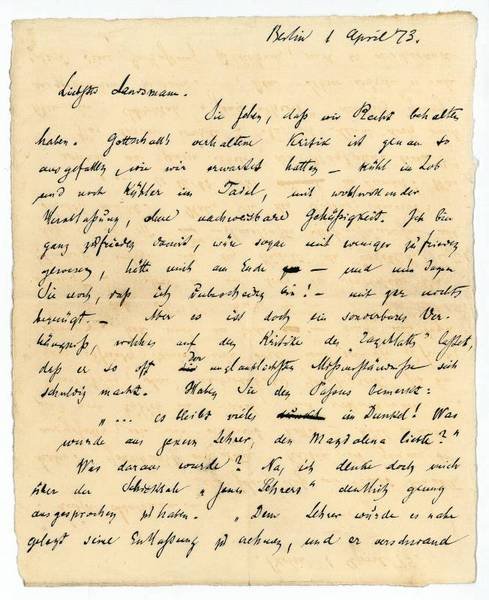 Berlin 1 April 73.
Liebster Landsmann.
Sie sehen, daß wir Recht behalten
haben. Gottschall's verhaltene Kritik ist genau so
ausgefallen, wie wir erwartet hatten – kühl im Lob
und noch kühler im Tadel, mit wohlwollender
ohne nachweisbare Gehäßigkeit. Ich bin
ganz zufrieden damit, wäre sogar mit weniger zufrieden
gewesen, hätte mich am Ende – und nun sagen
Sie noch, daß ich unbescheiden bin! – mit gar nichts
begnügt. – Aber es ist doch ein sonderbares Ver-
hängniß, welches auf den Kritiken des "Tageblatts" lastet,
daß er so oft der unglaublichsten Mißverständnisse sich
schuldig macht. Haben Sie den Passus bemerkt:
"... es bleibt vieles im Dunkel! Was
wurde aus jenem Lehrer, den Magdalena liebte?"
Was daraus wurde? Na, ich denke doch mich
über das Schicksal "jenes Lehrers" deutlich genug
ausgesprochen zu haben. "Dem Lehrer wurde es nahe
gelegt seine Entlassung zu nehmen, und er verschwand